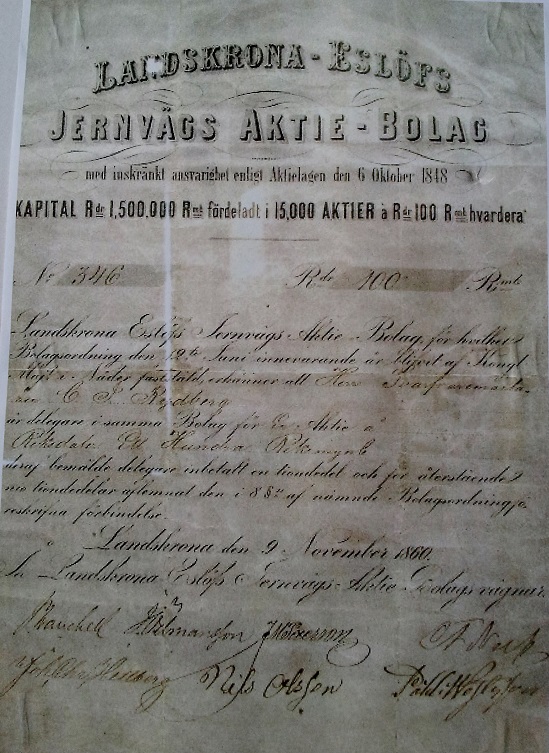 LANDSKRONA - ESLÖFS
JERNVÄGS AKTIE - BOLAG
med inskränkt ansvarighet enligt Aktielagen den 6 Oktober 1848
KAPITAL Rdr 1,500,000 Rmt fördeladt i 15,000 AKTIER à Rdr 100 Rmt hvardera
No 346 Rdr 100 Rmt
Landskrona Eslöfs Jernvägs Aktie Bolag, för hvilket
Bolagsordning den 19de Juni innevarande år blifvit af Kongl
Majt i Nåder fastställd, erkänner att Herr
C Rydberg
är delegare i samma Bolag för En Aktie à
Riksdaler Ett Hundra Riksmynt
deraf bemälde delegare inbetalt en tiondedel och för återstående
nio tiondedelar aflemnat den i 8 § af nämnde Bolagsordning fö-
reskrifna förbindelse.
Landskrona den 9 November 1860.
Landskrona Eslöfs Jernvägs-Aktie-Bolags vägnar.
Nils Olsson